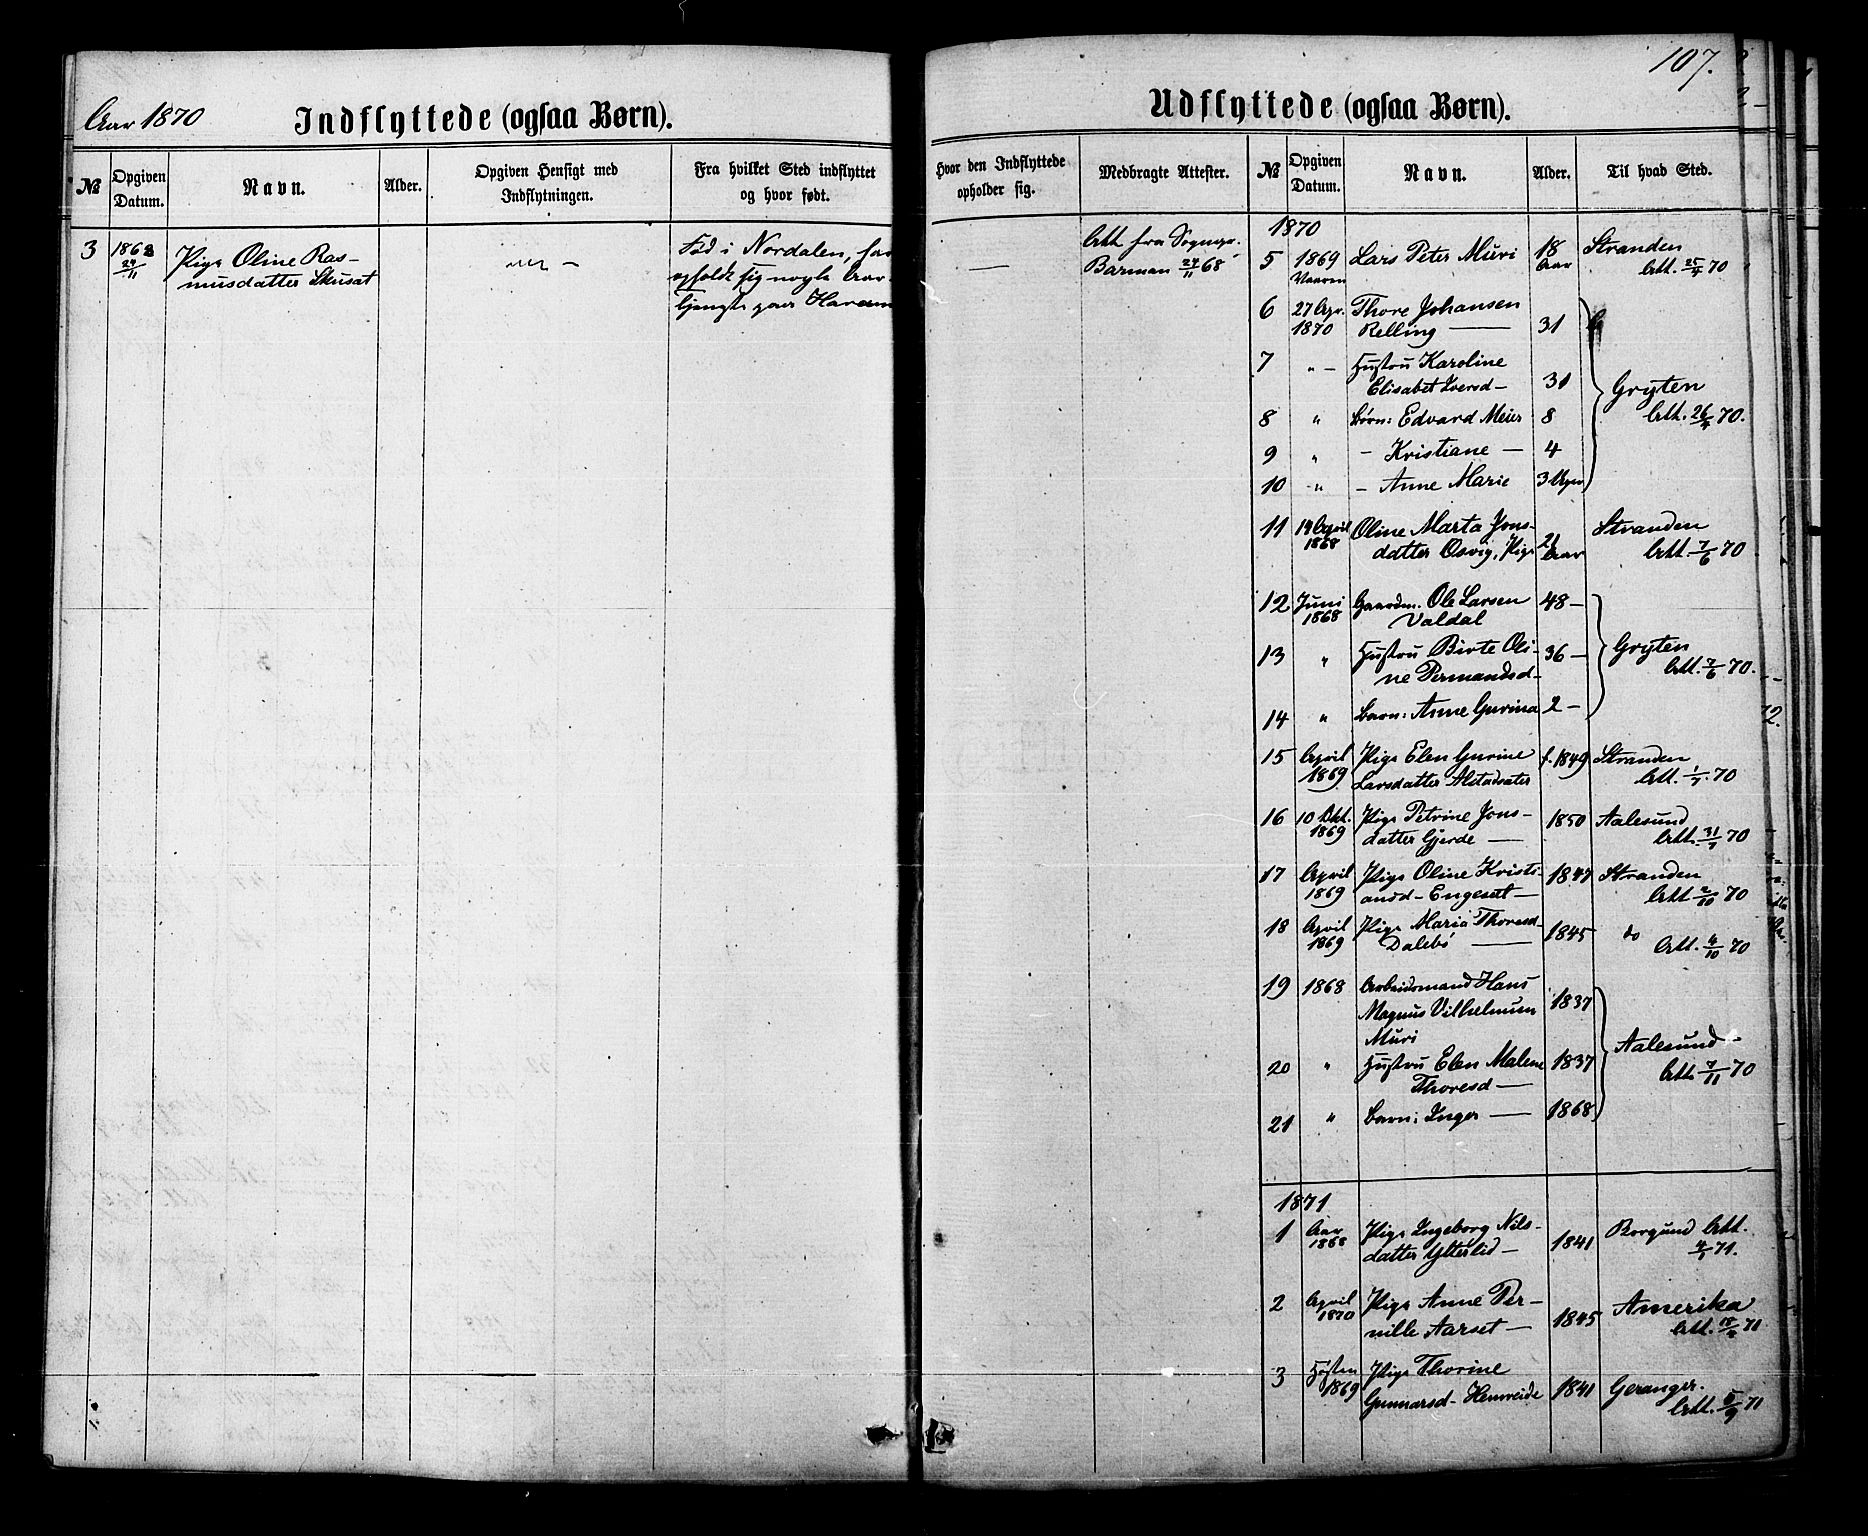 107.
Aar 1870 Indflyttede (ogsaa Børn).
Udflyttede (ogsaa Børn).
№ Opgiven Datum. Navn. Alder. Opgiven Hensigt med Indflytningen. Fra hvilket Sted indflyttet og hvor født.
Hvor den Indflyttede opholder sig. Medbragte Attester. № Opgiven Datum. Navn. Alder. Til hvad Sted.
3 1868 24/11 Pige Oline Ras-
musdatter Skusat
Fød i Nordalen, har
opholdt sig nogle Aar
Att. fra Sognepr.
Barman 24/11 68
1870
5 1869 Vaaren Lars Peter Muri 18 Aar Stranden
Att. 25/4 70
6 27 Apr. 1870 Thore Johansen
Relling — 31
7 " — Hustru Karoline
Elisabet Iversd — 31
Gryten
Att. 26/4 70.
8 " Børn: Edvard Meier 8
9 " — Kristiane — 4
10 " — Anne Marie 3 Uger
11 14 April 1868 Oline Marta Jons-
datter Osvig, Pige 21 Aar
Stranden
Att. 7/6 70
12 Juni 1868 Gaardm. Ole Larsen 48 —
Valdal
13 " Hustru Birte Oli- 36 —
ne Permandsd —
Gryten
Att. 7/6 70.
14 " Barn: Anne Gurina 2 —
15 April 1869 Pige Elen Gurine f. 1849 Stranden
Larsdatter Alstadsæter Att. 1/7 70
16 10 Okt. 1869 Pige Petrine Jons- 1850 Aalesund
datter Gjerde — Att. 31/7 70
17 April 1869 Pige Oline Kristi- 1847 Stranden
ansd — Engeset — Att 2/10 70
18 April 1869 Pige Maria Thoresd — 1845 do
Dalebø — Att. 4/10 70
19 1868 Arbeidsmand Hans
Magnus Vilhelmum 1837
Muri
Aalesund —
Att. 7/11 70
20 " Hustru Elen Malene 1837
Thoresd —
21 " Barn: Inger — 1868
1871
1 Aar 1868 Pige Ingeborg Nils-
datter Ytterlid — 1841 Borgund Att.
4/1 71.
2 April 1870 Pige Anne Per-
nille Aarset — 1845 Amerika
Att. 71
3 Høsten 1869 Pige Thorine
Gunnarsd — 1841 Geranger.
Att. 5/9 71